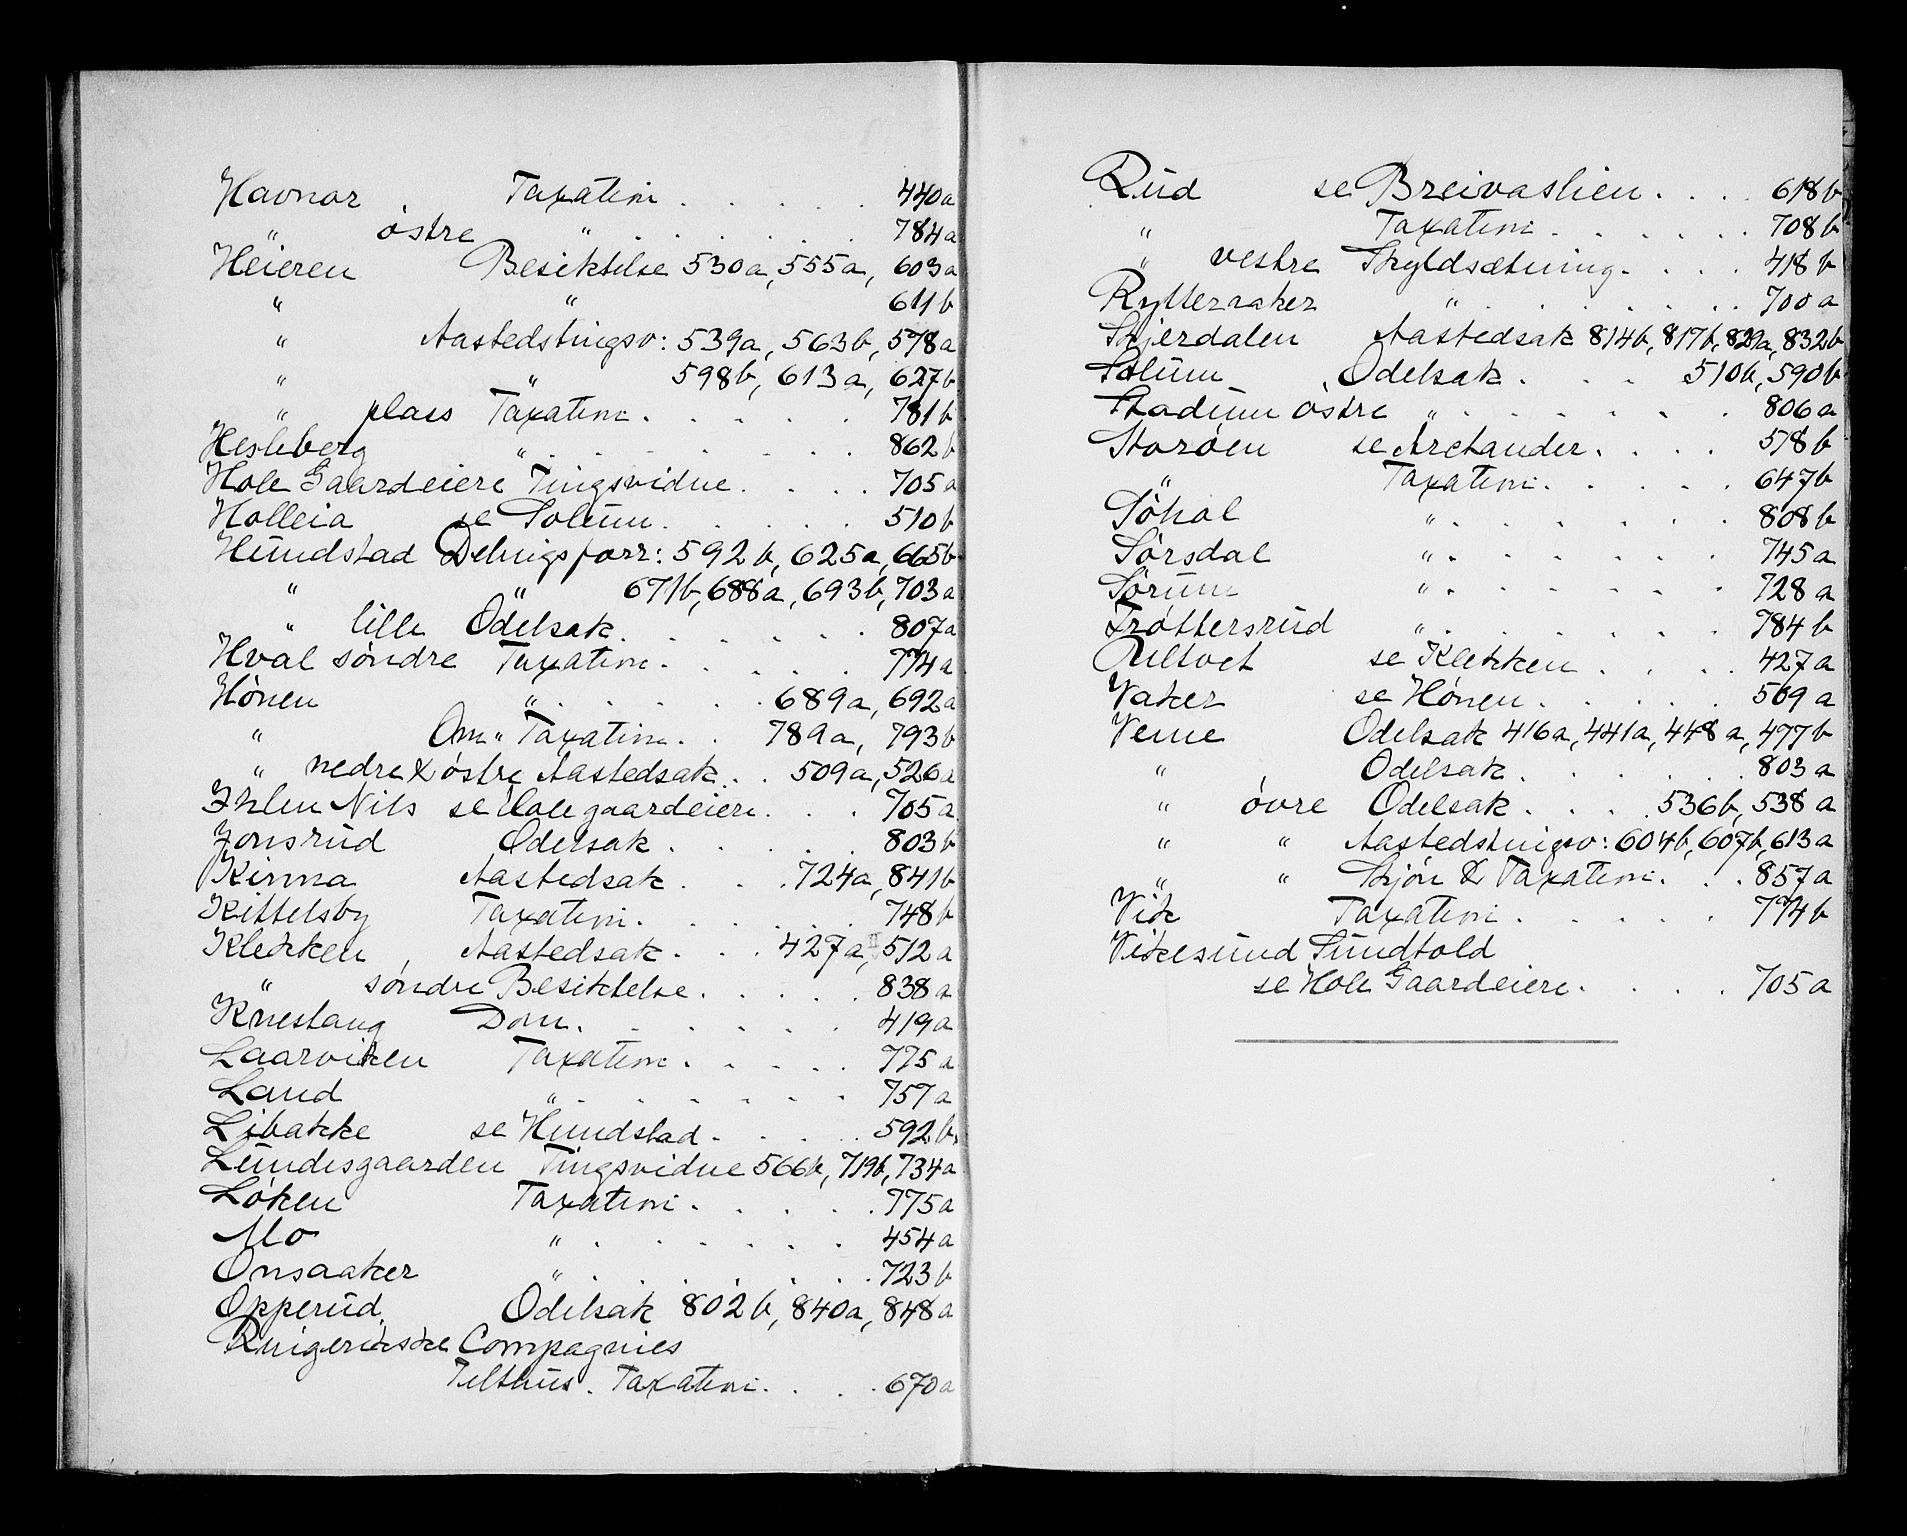 Havnor . Taxation . . . . . 440a
" østre " . . . . . . . 784a
Heieren Besiktelse 530a, 555a, 603a
" " 611b
" Aastedstingsv: 539a, 563b, 578a
" " 598b, 613a, 627b
" plass Taxation . . . . . 781b
Hesleberg " . . . . . . . 862b
Hole Gaardeiere Tingsvidne . . . . 705a
Holleia se Solum . . . . . 510b
Hundstad Delingsforr: 592b, 625a, 665b
" " 671b, 688a, 693b, 703a
" lille Odelsak . . . . . . 807a
Hval søndre Taxation . . . . . 774a
Hønen " . . . . . . 689a, 692a
" Om " Taxation . . 789a, 793b
" nedre & østre Aastedsak . . 509a, 526a
Ihlen Nils se Hole gaardeiere . . . 705a
Jonsrud Odelsak . . . . . 803b
Kinna Aastedsak . . . 724a, 841b
Kittelsby Taxation . . . . . 748b
Klekken , Aastedsak . . . 427a, II 512a
" søndre Besiktelse . . . . . 838a
Knestang Dom . . . . . . 419a
Laarviken Taxation . . . . . 775a
Land " . . . . . . . 757a
Libakke se Hundstad . . . . . 592b.
Lundesgaarden Tingsvidne 566b, 719b, 734a
Løken Taxation . . . . . . 775a
Mo " . . . . . . 454a
Onsaaker " . . . . . . . 723b
Opperud. Odelsak 802b, 840a, 848a
Ringerikske Compagnies
Telthus . Taxation . . . . 670a
Rud se Breivaslien . . . . 618b
" Taxation . . . . . . 708b
" vestre Skyldsætning . . . . 418b
Rytteraker " . . . . . . . . 700a
Skjerdalen Aastedsak 814b, 817b, 829a, 832b
Solum , Odelsak . . . 510b, 590b
Stadum østre " . . . . . . . 806a
Storøen se Arctander . . . . 518b
" Taxation . . . . . 647b
Søhol " . . . . . . . 808b
Sørsdal " . . . . . . 745a
Sørum " . . . . . . . 728a
Trøttersrud " . . . . . . . 784b
Ultvet se Klekken . . . . 427a
Vaker se Hønen . . . . . 509a
Veme Odelsak 416a, 441a, 448a, 477b
" Odelsak . . . . . . . 803a
" øvre Odelsak . . . . 536b, 538a
" " Aastedstingsv: 604b, 607b, 613a
" " Skjøn & Taxation . . . 857a
Vik Taxation . . . . . 774b
Vikesund Sundtold
se Hole Gaardeiere . . . . 705a